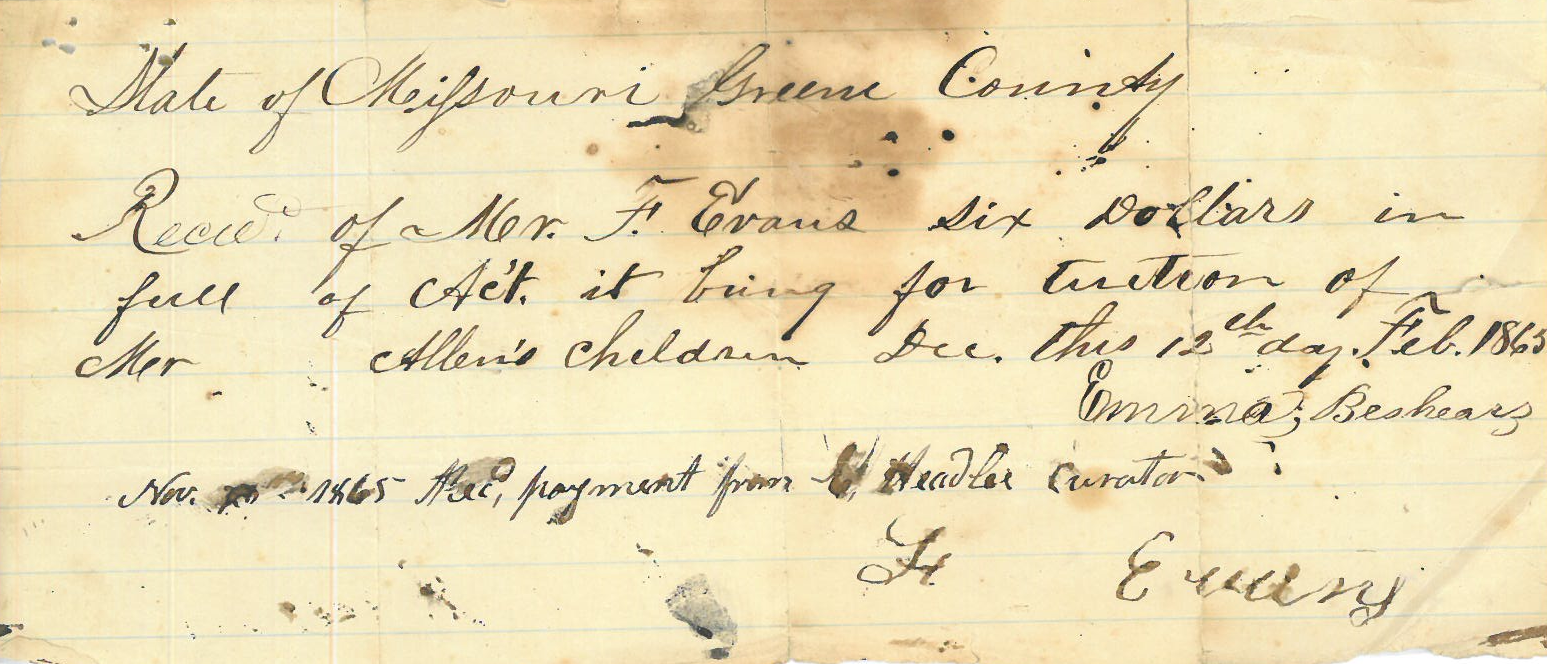 State of Missouri Greene County
Recd. of Mr. F. Evans six Dollars in
full of Act. it being for tuction of
Mr Allen's children Dec. this 12th day. Feb. 1863
Emma, Beshears
Nov. 1865 Rec, payment from Headlee Curator
F Evans